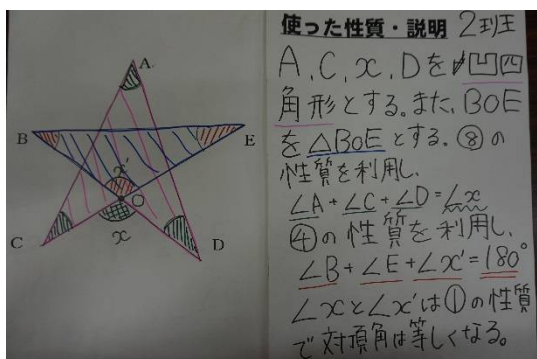 A
B
E
x'
O
C
x
D
使った性質・説明 2班
A, C, x, Dを凹四
角形とする。また、BOE
を△BOEとする。⑧の
性質を利用し、
∠A+∠C+∠D=∠x
④の性質を利用し、
∠B+∠E+∠x'=180°
∠xと∠x'は①の性質
で対頂角は等しくなる。